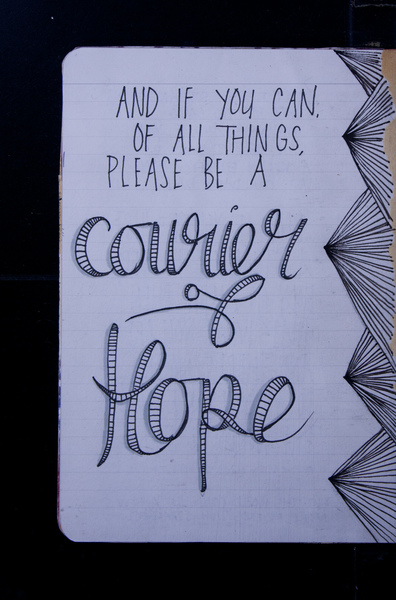 AND IF YOU CAN,
OF ALL THINGS,
PLEASE BE A
courier
of
Hope